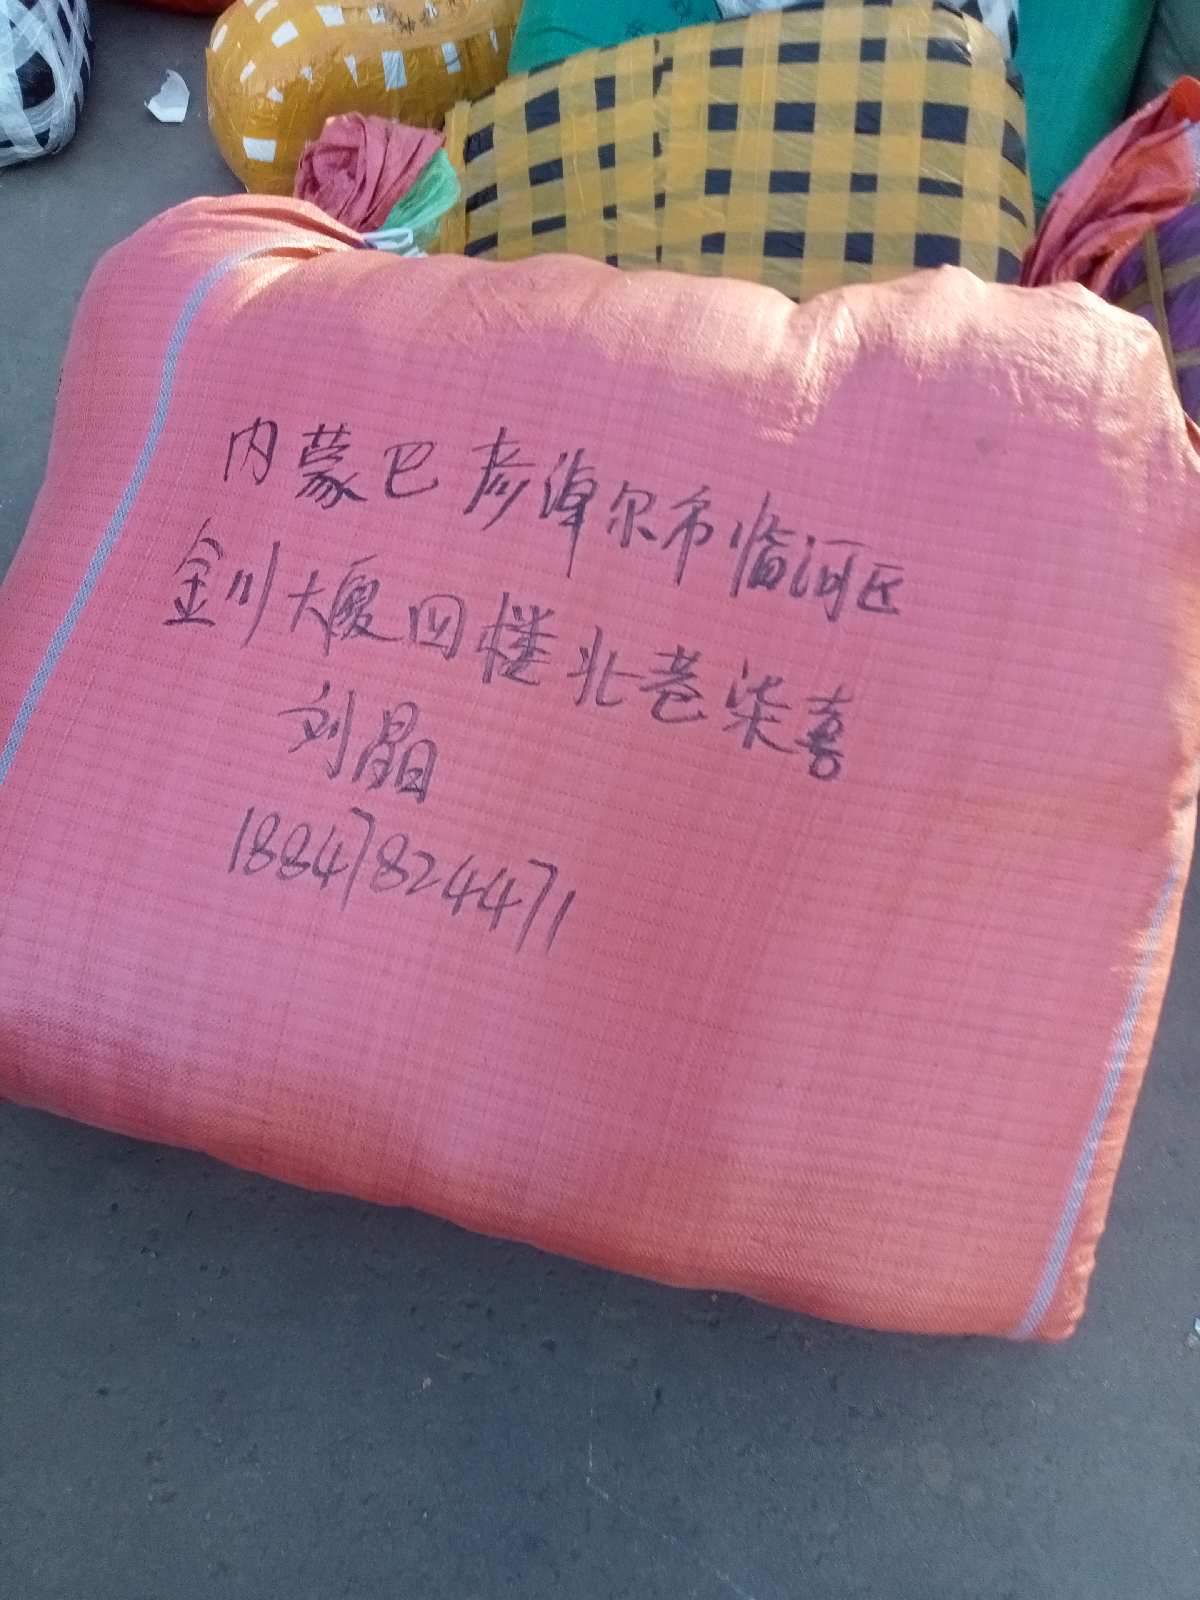 内蒙巴彦淖尔市临河区
金川大厦四楼北巷柒喜
刘晶
18847824471